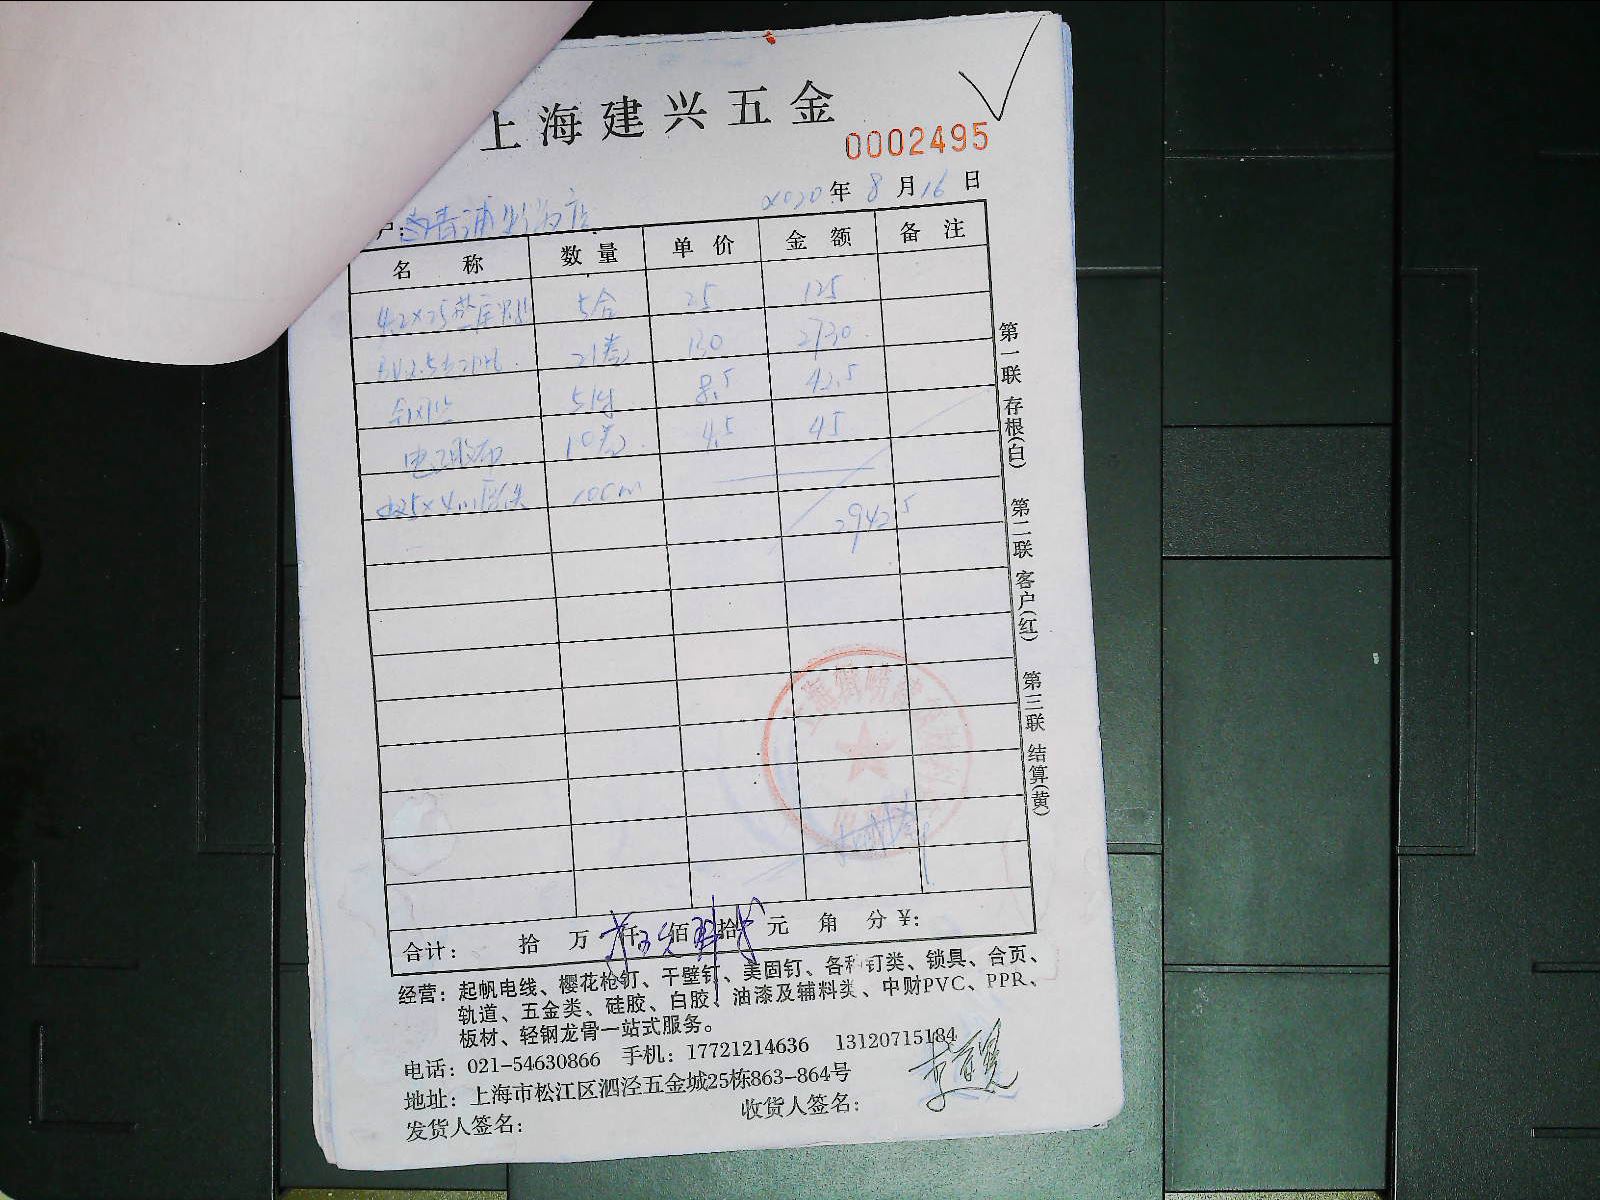 上海建兴五金
0002495
2020年8月16日
户:
名称 数量 单价 金额 备注
4.2×25 5合 25 125
BV2.5 21卷 130 2730
5kg 8.5 42.5
电工胶布 10卷 4.5 45
φ25×4 10cm
2942.5
合计: 拾 万 仟 佰 拾 元 角 分 ¥:
经营:起帆电线、樱花枪钉、干壁钉、美固钉、各种钉类、锁具、合页、
轨道、五金类、硅胶、白胶、油漆及辅料类、中财PVC、PPR、
板材、轻钢龙骨一站式服务。
电话:021-54630866 手机:17721214636 13120715184
地址:上海市松江区泗泾五金城25栋863-864号
发货人签名: 收货人签名:
第一联 存根(白) 第二联 客户(红) 第三联 结算(黄)